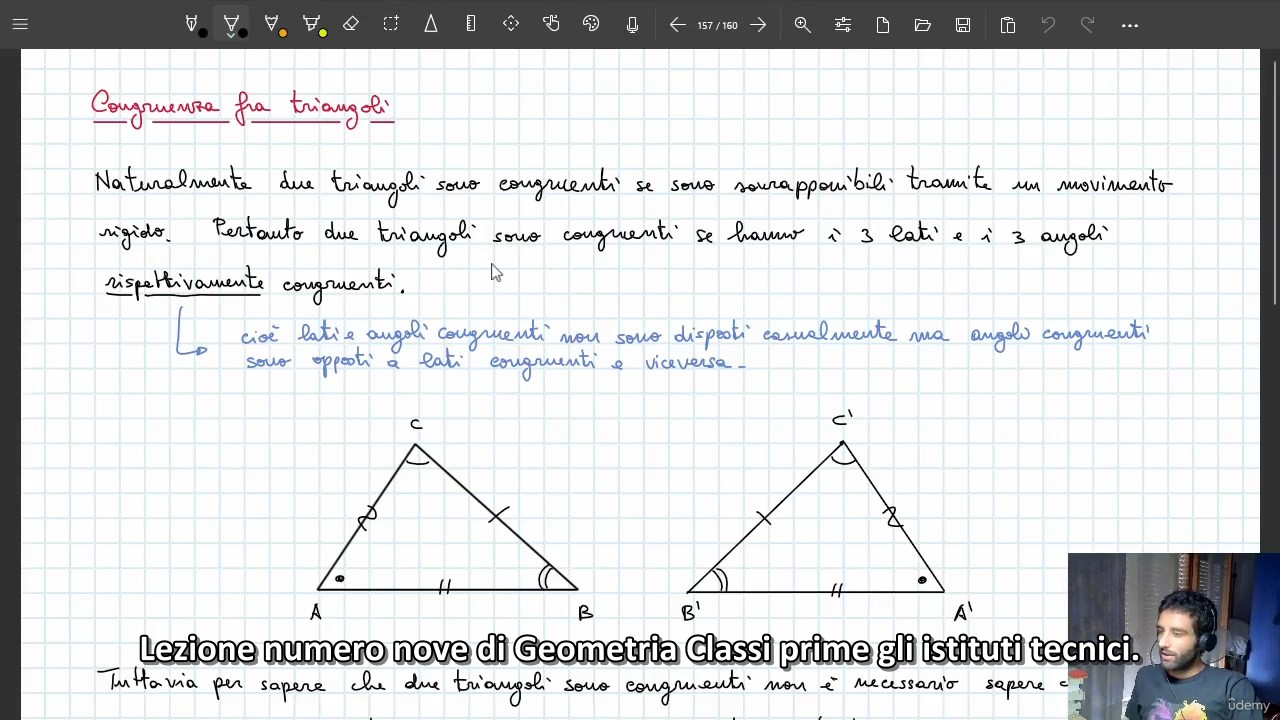 157 / 160
Congruenza fra triangoli
Naturalmente due triangoli sono congruenti se sono sovrapponibili tramite un movimento
rigido. Pertanto due triangoli sono congruenti se hanno i 3 lati e i 3 angoli
rispettivamente congruenti.
cioè lati e angoli congruenti non sono disposti casualmente ma angolo congruenti
sono opposti a lati congruenti e viceversa -
C C'
A B B' A'
Lezione numero nove di Geometria Classi prime gli istituti tecnici.
Tuttavia per sapere che due triangoli sono congruenti non è necessario sapere
ûdemy